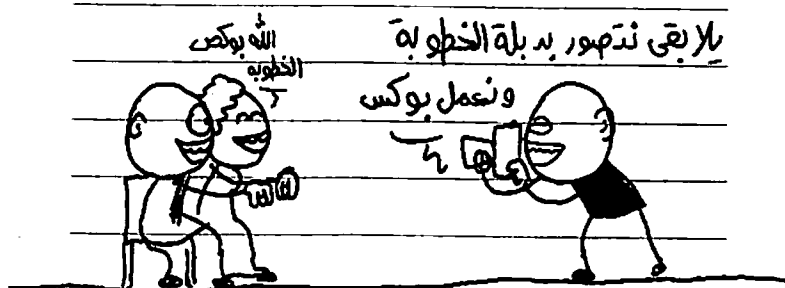 يلا بقى نتصور بدبلة الخطوبة
ونعمل بوكس
الله بوكص
الخطوبه